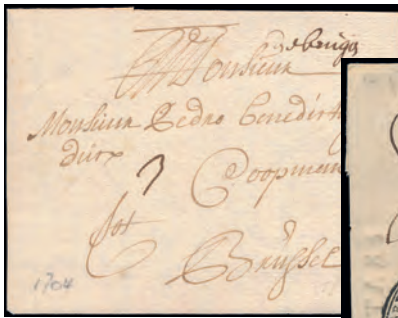 debruges
Monsieur
Monsieur Pedro Benedict
3 Coopman
tot
Brussel
1704